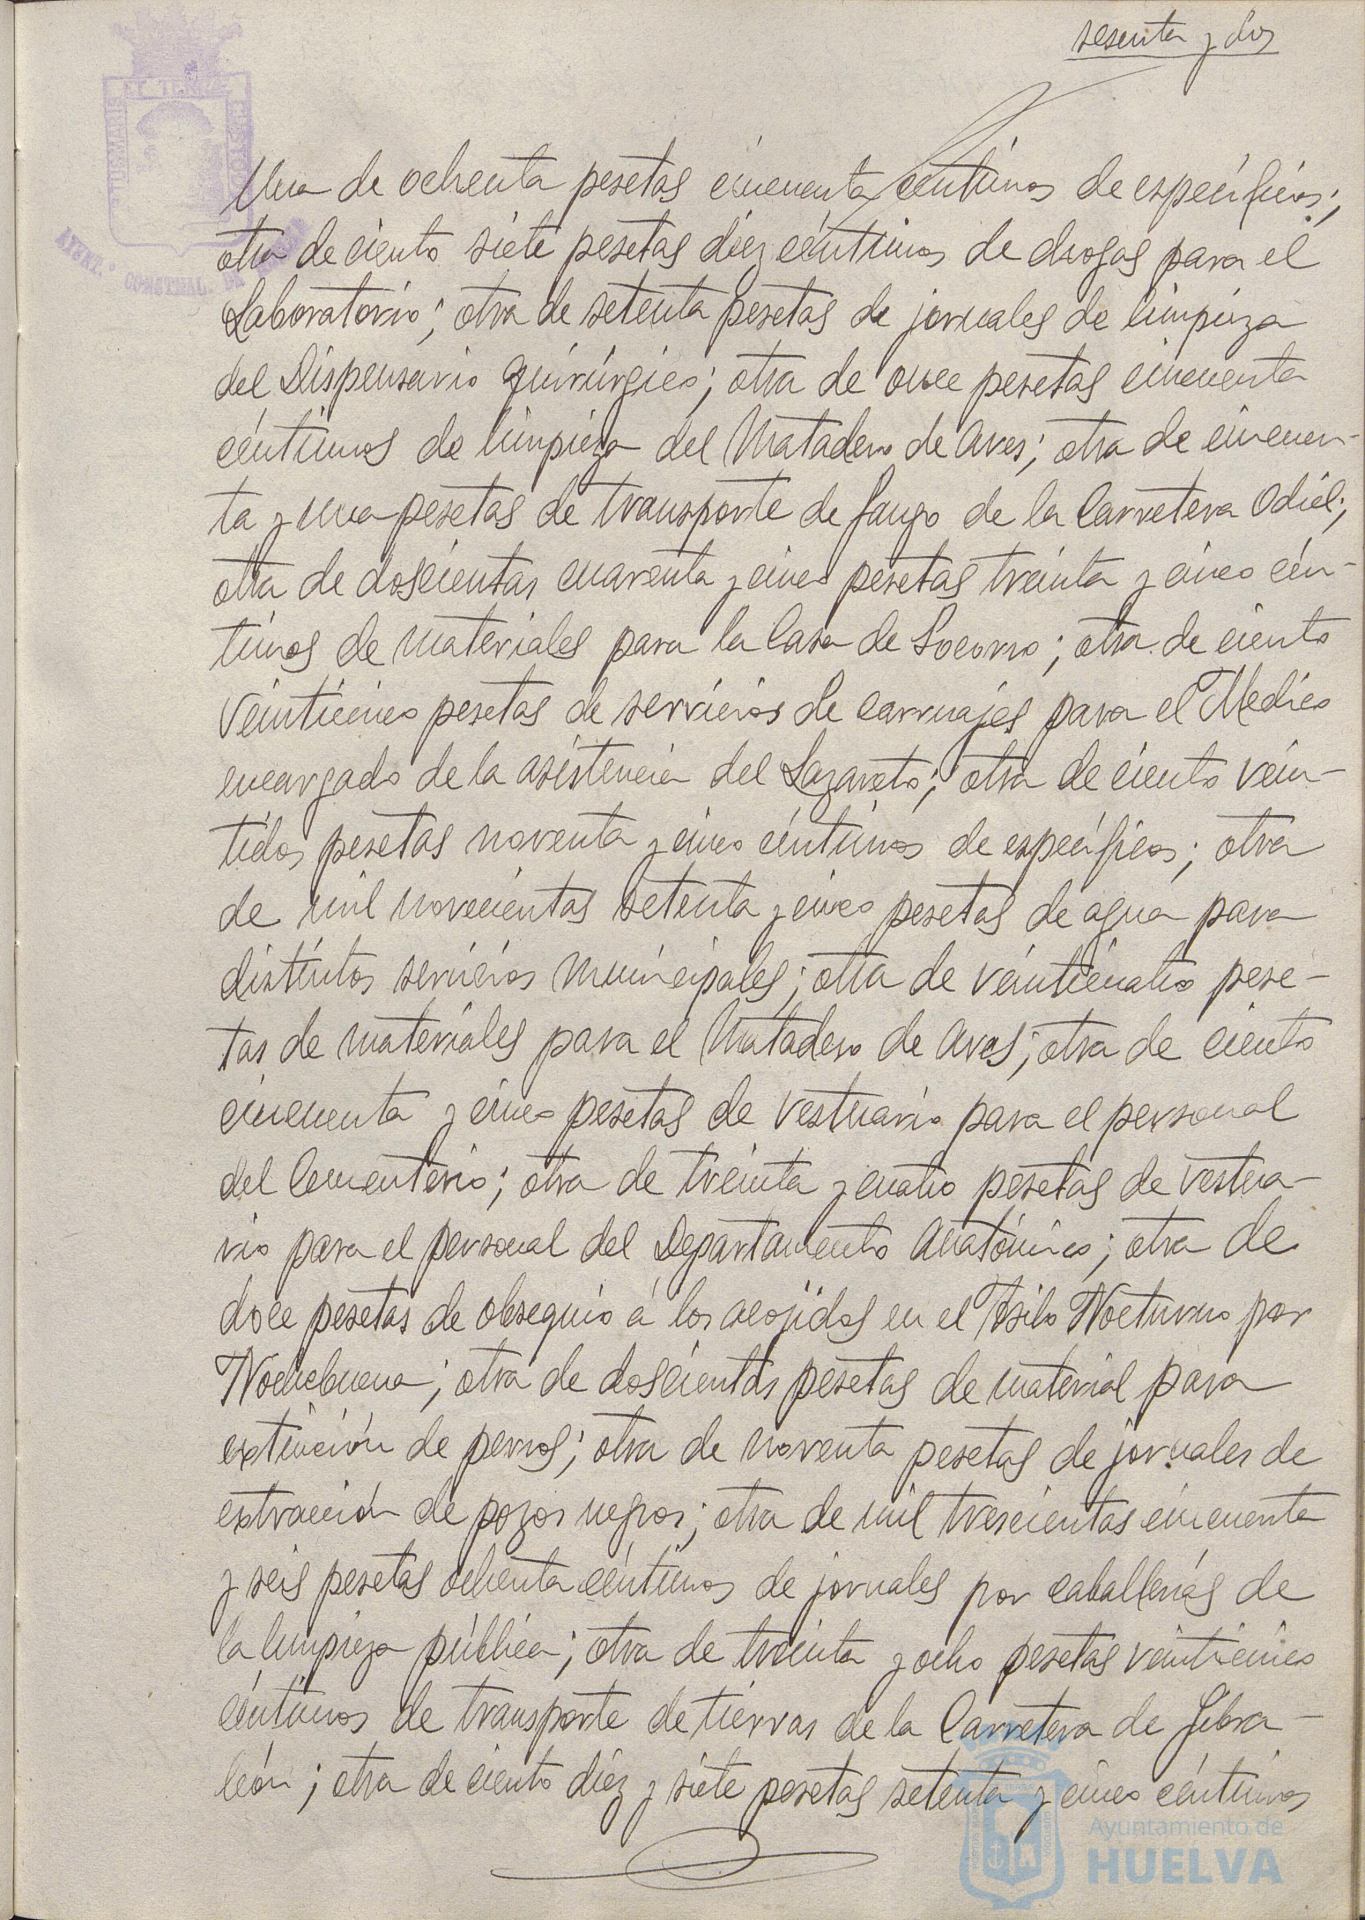 sesenta y dos
Una de ochenta pesetas cincuenta céntimos de específicos;
otra de ciento siete pesetas diez céntimos de drogas para el
Laboratorio; otra de setenta pesetas de jornales de limpieza
del Dispensario quirúrgico; otra de once pesetas cincuenta
céntimos de limpieza del Matadero de Aves; otra de cincuen-
ta y una pesetas de transporte de fango de la Carretera Odiel;
otra de doscientas cuarenta y cinco pesetas treinta y cinco cén-
timos de materiales para la Casa de Socorro; otra de ciento
veinticinco pesetas de servicios de carruajes para el Médico
encargado de la asistencia del Lazareto; otra de ciento vein-
tidos pesetas noventa y cinco céntimos de específicos; otra
de mil novecientas setenta y cinco pesetas de agua para
distintos servicios municipales; otra de veinticuatro pese-
tas de materiales para el Matadero de Aves; otra de ciento
cincuenta y cinco pesetas de vestuario para el personal
del Cementerio; otra de treinta y cuatro pesetas de vestua-
rio para el personal del Departamento Anatómico; otra de
doce pesetas de obsequio á los acojidos en el Asilo Nocturno por
Nochebuena; otra de doscientas pesetas de material para
extinción de perros; otra de noventa pesetas de jornales de
extracción de pozos negros; otra de mil trescientas cincuenta
y seis pesetas ochenta céntimos de jornales por caballerías de
la limpieza pública; otra de treinta y ocho pesetas veinticinco
céntimos de transporte de tierras de la Carretera de Gibra-
león; otra de ciento diez y siete pesetas setenta y cinco céntimos
AYUNT.º CONSTNAL. DE HUELVA
Ayuntamiento de
HUELVA